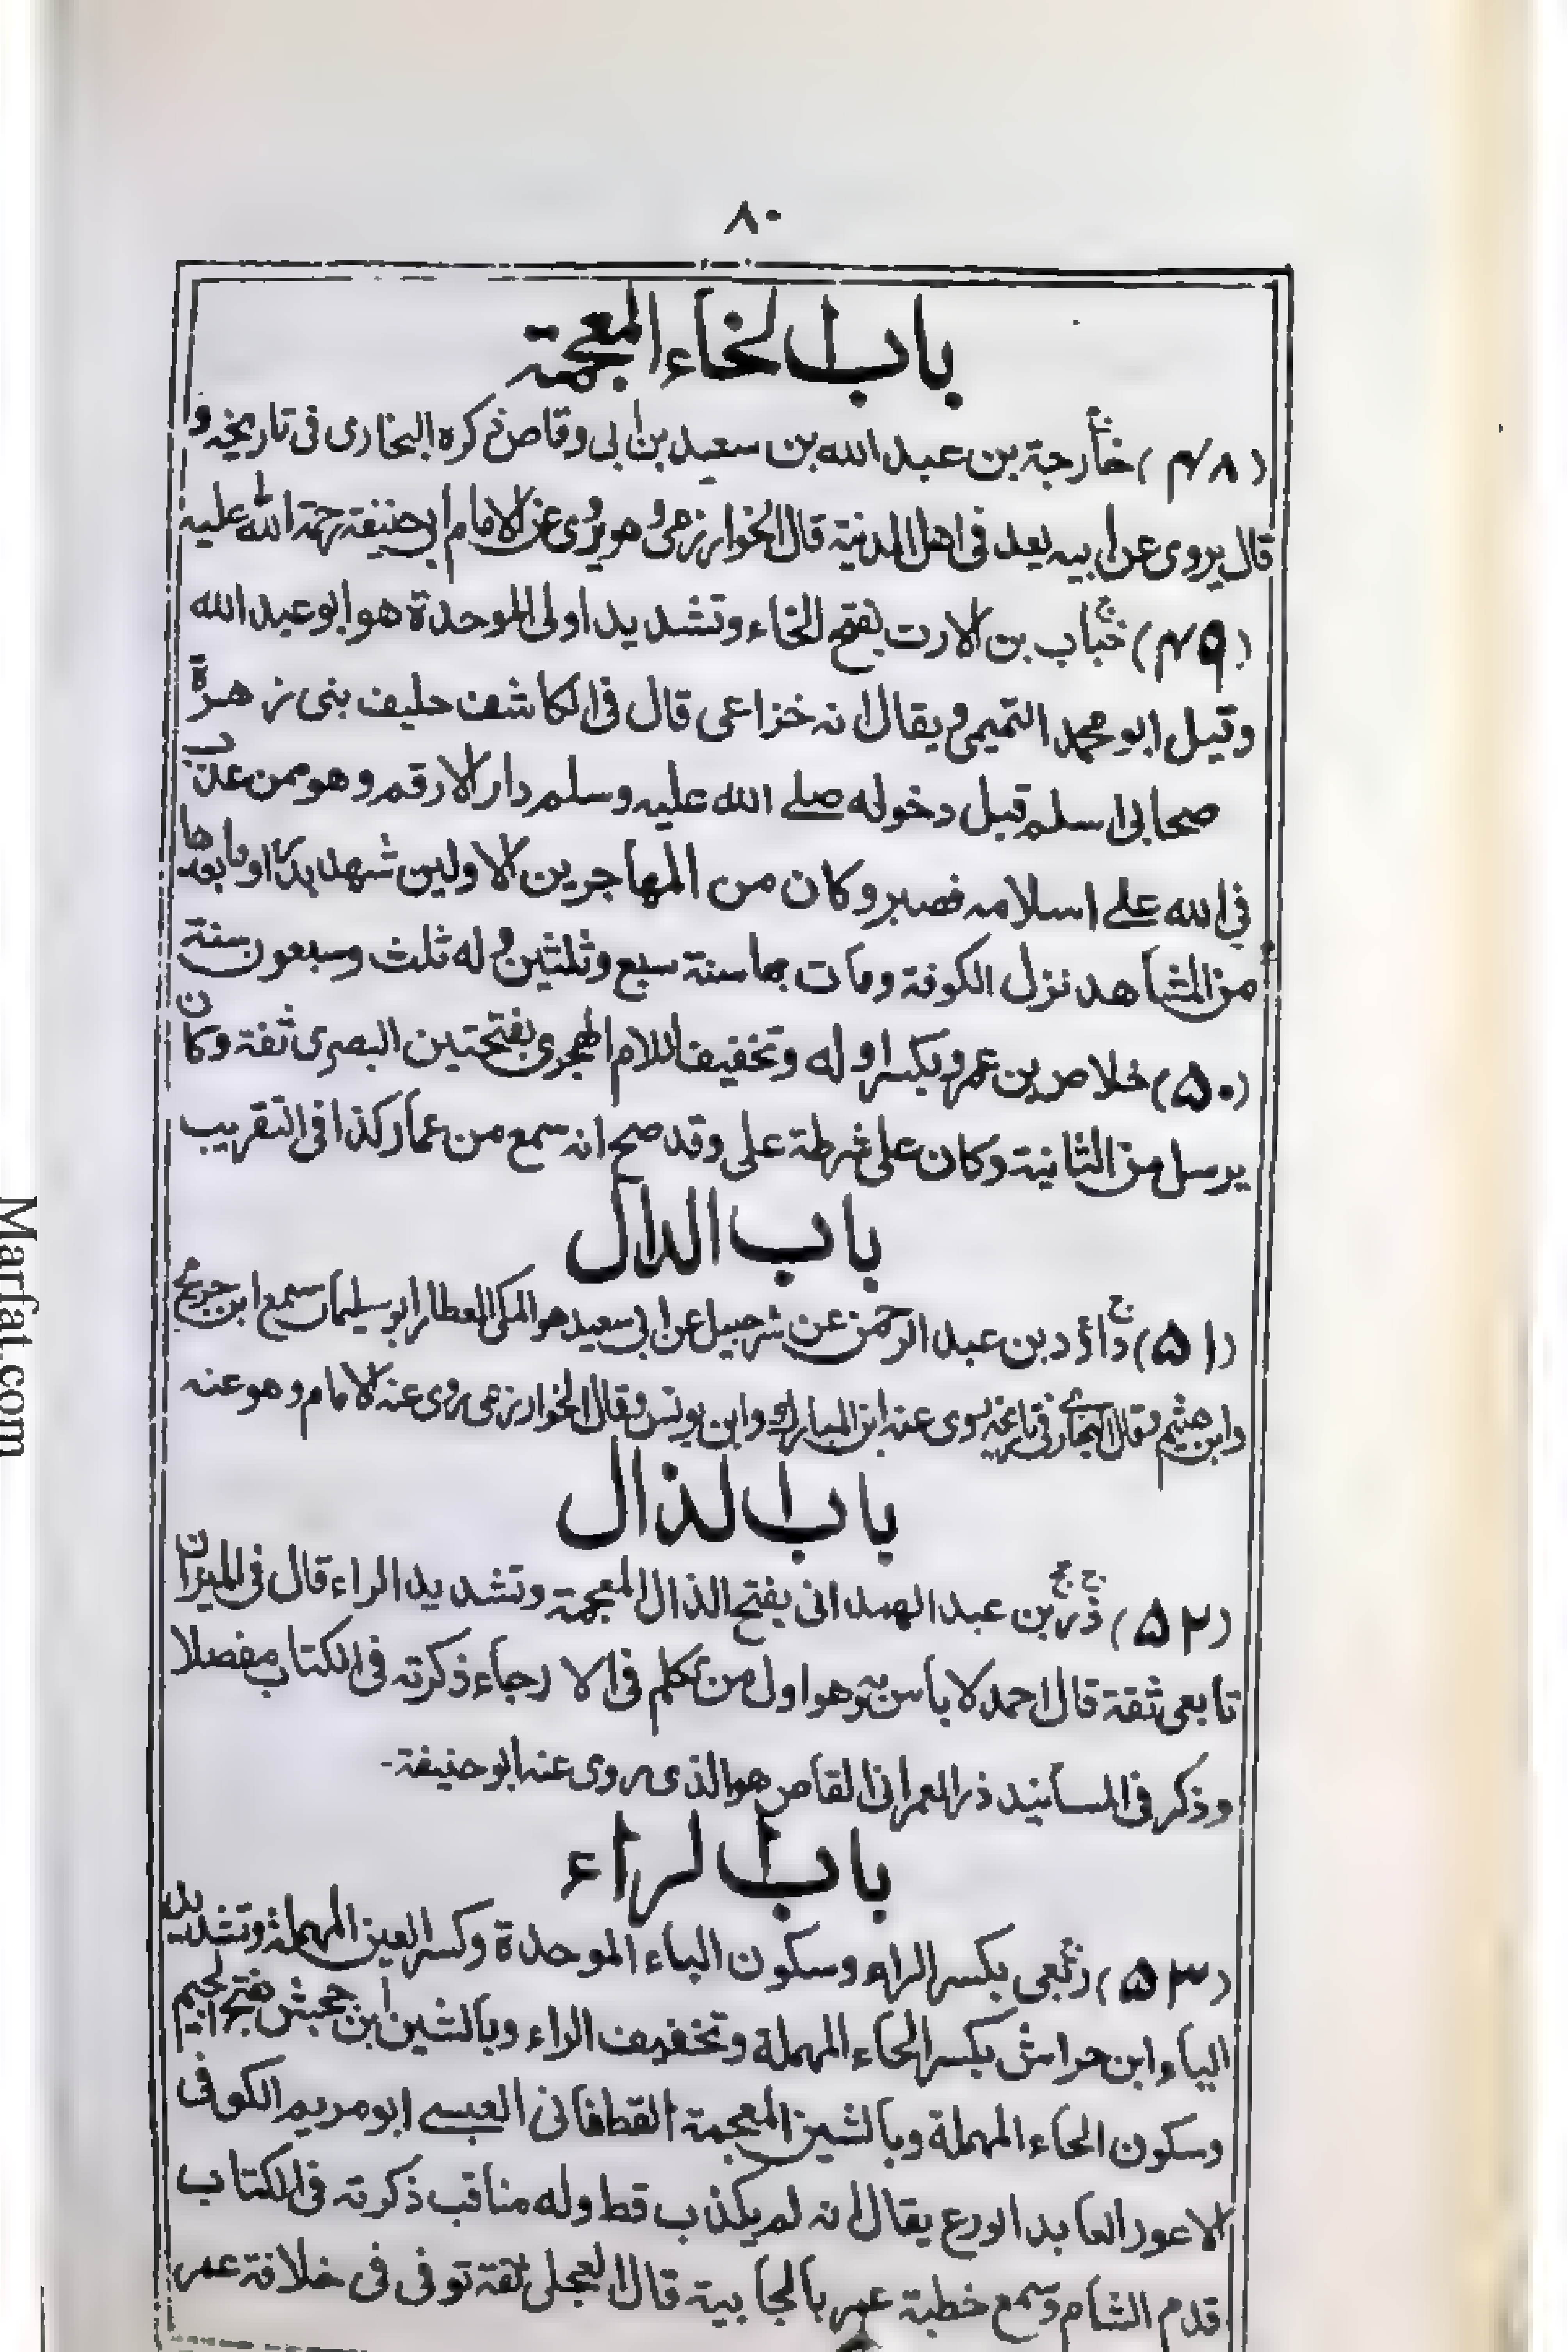 ٨٠
باب الخاء المعجمة
(۴۸) خارجة بن عبد الله بن سعيد بن ابى وقاص ذكره البخارى فى تاريخه و
قال يروى عن ابيه يعد فى اهل المدينة قال الخوارزمى وهو يروى عن الامام ابى حنيفة رحمة الله عليه
(۴۹) خباب بن الارت بفتح الخاء وتشديد اولى الموحدة هو ابو عبد الله
وقيل ابو محمد التميمى ويقال انه خزاعى قال فى الكاشف حليف بنى زهرة
صحابى اسلم قبل دخوله صلے الله عليه وسلم دار الارقم وهو ممن عذب
فى الله علے اسلامه فصبر وكان من المهاجرين الاولين شهد بدرا وما بعدها
من المشاهد نزل الكوفة ومات بها سنة سبع وثلثين وله ثلث وسبعون سنة
(۵۰) خلاص بن عمرو بكسر اوله وتخفيف اللام الهجرى بفتحتين البصرى ثقة وكان
يرسل من الثانية وكان على شرطة على وقد صح انه سمع من عمار كذا فى التقريب
باب الدال
(۵۱) داؤد بن عبد الرحمن عن شرحبيل عن ابى سعيد هو المكى العطار ابو سليمان سمع ابن جريج
وابن خثيم وقال البخارى فى تاريخه روى عنه ابن المبارك وابن يونس وقال الخوارزمى روى عنه الامام وهو عنه
باب الذال
(۵۲) ذر بن عبد الهمدانى بفتح الذال المعجمة وتشديد الراء قال فى الميزان
تابعى ثقة قال احمد لا بأس به وهو اول من تكلم فى الارجاء ذكرته فى الكتاب مفصلا
وذكر فى المسانيد ذر العمرانى القاص هو الذى روى عنه ابو حنيفة-
باب الراء
(۵۳) ربعى بكسر الراء وسكون الباء الموحدة وكسر العين المهملة وتشديد
الياء ابن حراش بكسر الحاء المهملة وتخفيف الراء وبالشين ابن جحش بفتح الجيم
وسكون الحاء المهملة وبالشين المعجمة القطفانى العبسے ابو مريم الكوفى
الاعور العابد الورع يقال انه لم يكذب قط وله مناقب ذكرته فى الكتاب
قدم الشام وسمع خطبة عمر بالجابية قال العجلى ثقة توفى فى خلافة عمر
Marfat.com